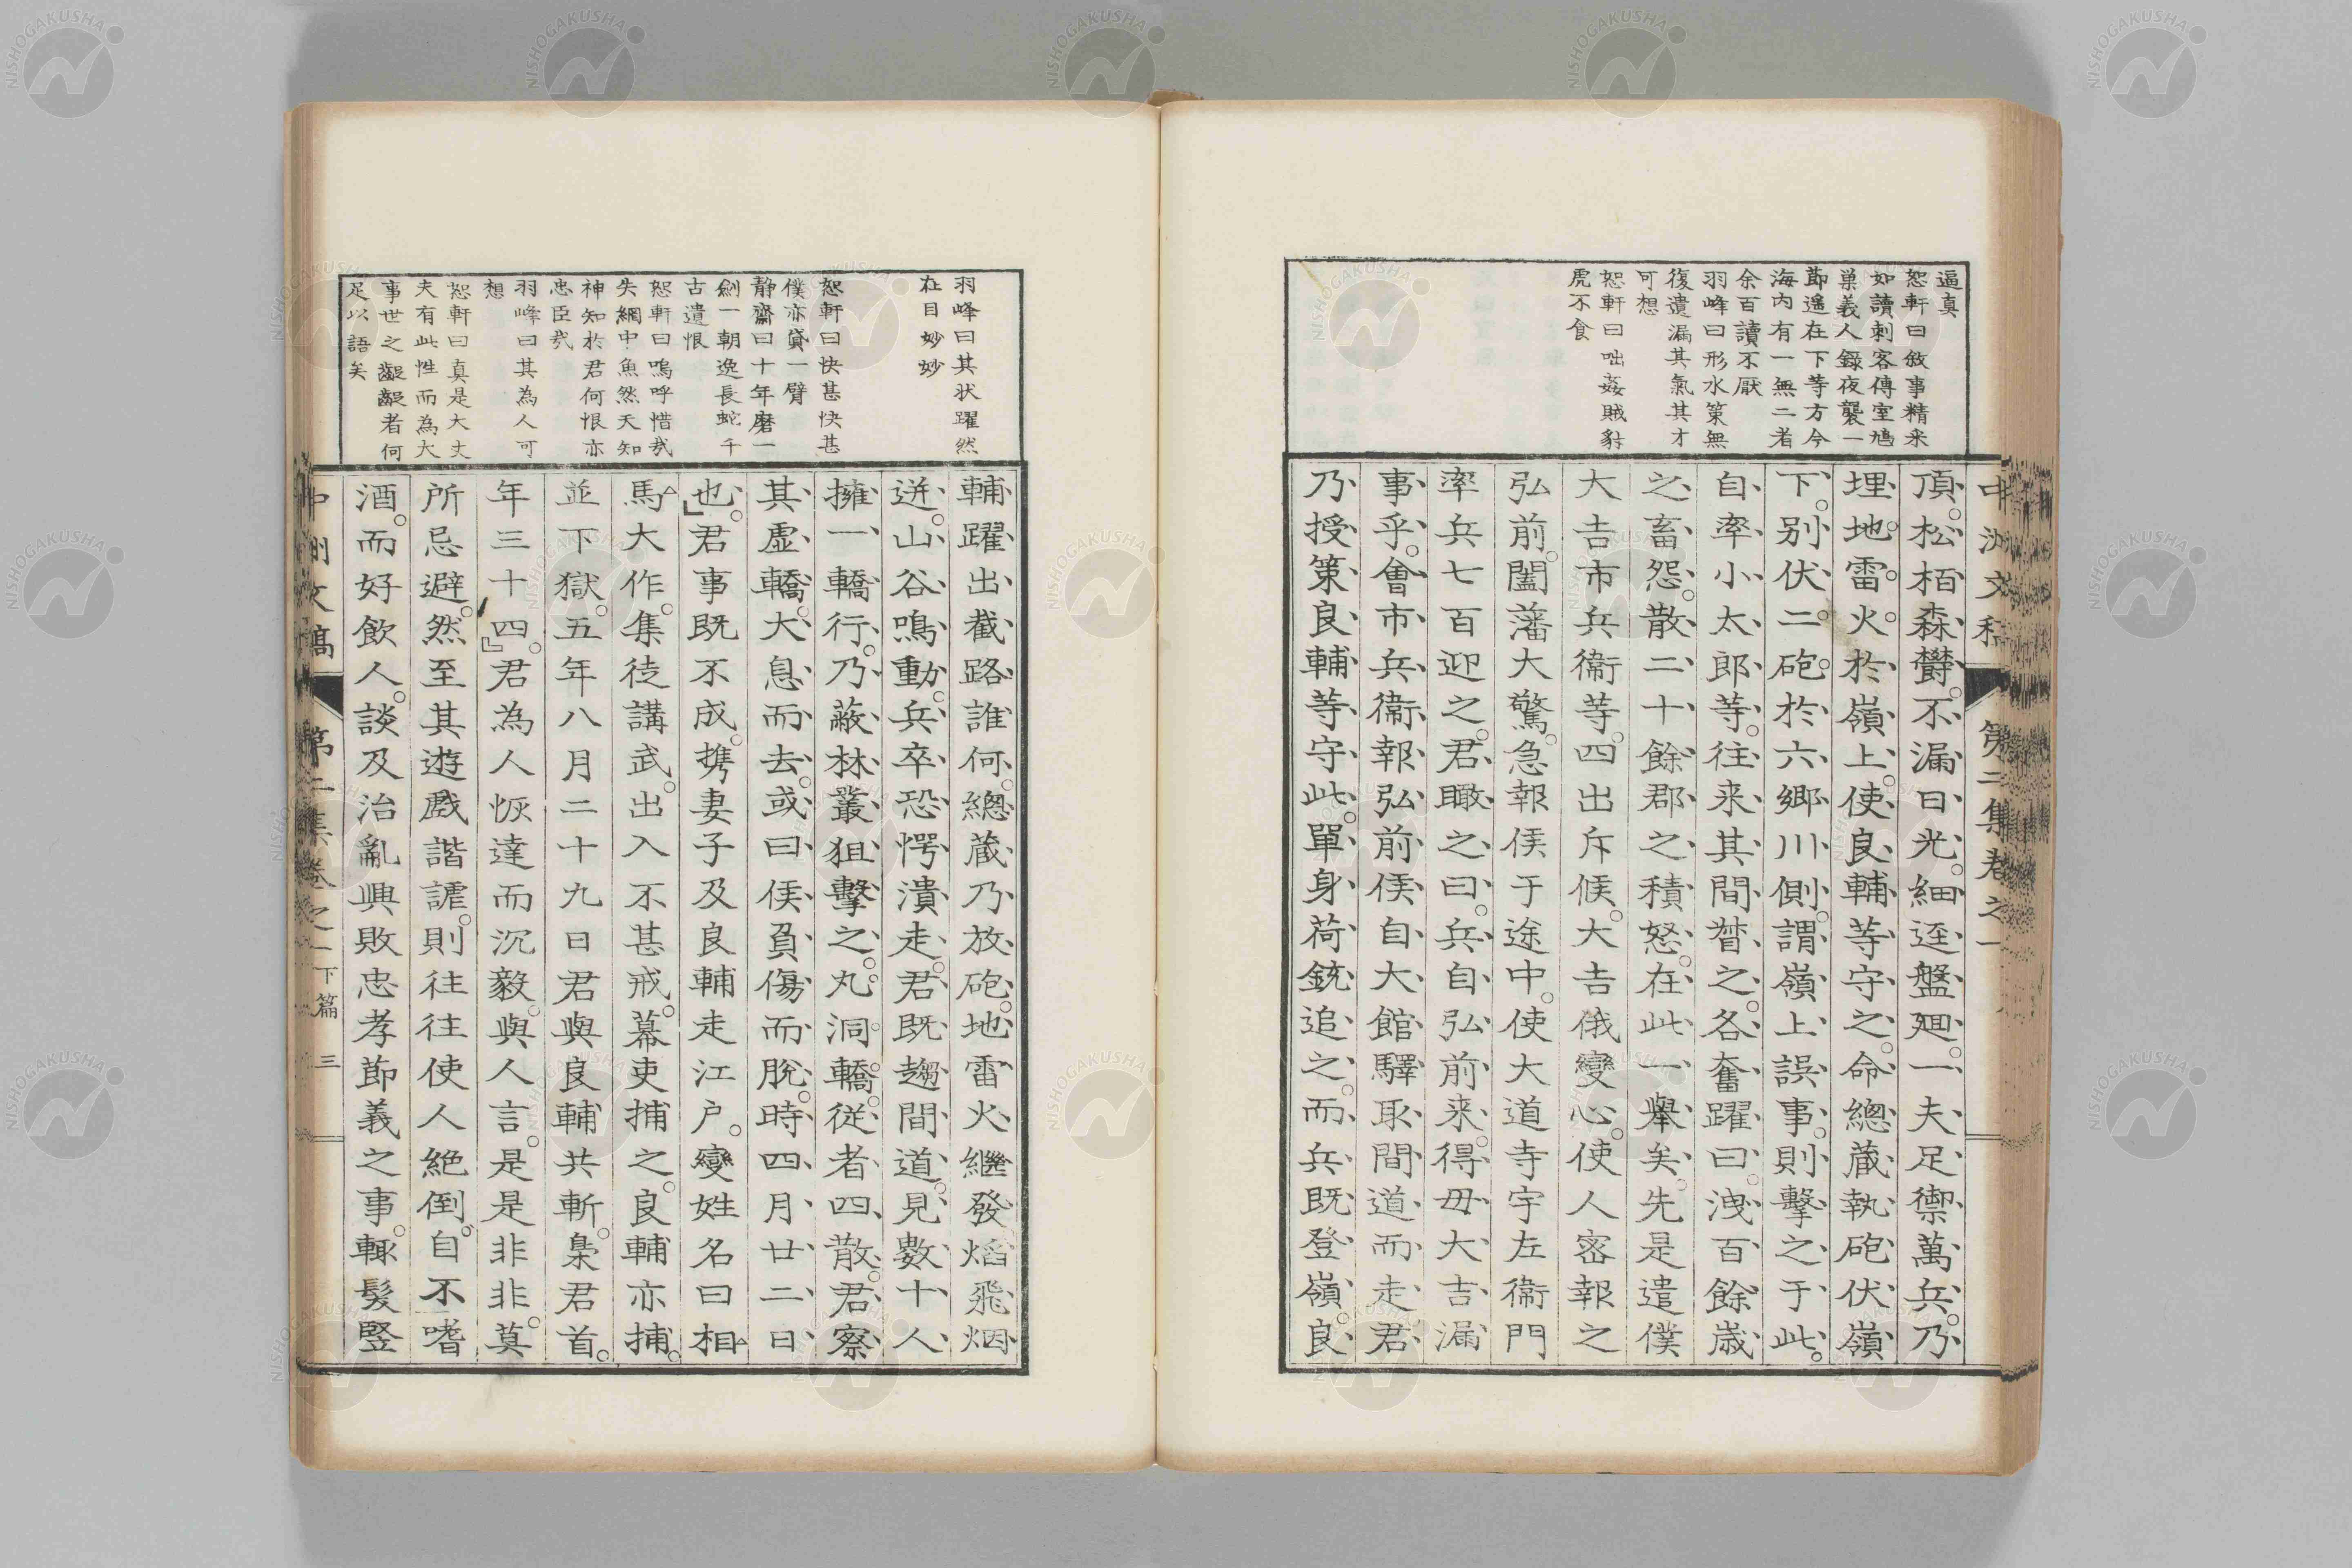 逼真
恕軒曰敘事精采
如讀刺客傳室鳩
巢義人錄夜襲一
節遙在下等方今
海内有一無二者
余百讀不厭
羽峰曰形水策無
復遺漏其氣其才
可想
恕軒曰咄姦賊豺
虎不食
頂。松栢森欝。不漏日光。細逕盤廻。一夫足禦萬兵。乃
埋地雷火於嶺上。使良輔等守之。命總藏執砲伏嶺
下。別伏二砲於六鄉川側。謂嶺上誤事。則擊之于此。
自率小太郎等。往来其間督之。各奮躍曰。洩百餘歲
之畜怨。散二十餘郡之積怒。在此一擧矣。先是遣僕
大吉市兵衞等。四出斥候。大吉俄變心。使人密報之
弘前。闔藩大驚。急報侯于途中。使大道寺宇左衞門
率兵七百迎之。君瞰之曰。兵自弘前来。得毋大吉漏
事乎。會市兵衞報弘前侯自大館驛取間道而走。君
乃授策良輔等守此。單身荷銃追之。而兵既登嶺。良
中洲文稿 第二集卷之一
羽峰曰其状躍然
在目妙妙
恕軒曰快甚快甚
僕亦貸一臂
靜齋曰十年磨一
劍一朝逸長蛇千
古遺恨
恕軒曰嗚呼惜哉
失網中魚然天知
神知於君何恨亦
忠臣哉
羽峰曰其為人可
想
恕軒曰真是大丈
夫有此性而為大
事世之齷齪者何
足以語矣
輔躍出截路誰何。總藏乃放砲。地雷火繼發焰飛烟
迸。山谷鳴動。兵卒恐愕潰走。君既趨間道。見數十人
擁一轎行。乃蔽林叢狙擊之。丸洞轎。從者四散。君察
其虛轎。大息而去。或曰侯負傷而脫。時四月廿二日
也。君事既不成。携妻子及良輔走江户。變姓名曰相
馬大作。集徒講武。出入不甚戒。幕吏捕之。良輔亦捕。
並下獄。五年八月二十九日君與良輔共斬。梟君首。
年三十四。君為人恢達而沉毅。與人言。是是非非。莫
所忌避。然至其遊戲諧謔。則往往使人絕倒。自不嗜
酒。而好飲人。談及治亂興敗忠孝節義之事。輙髮竪
中洲文稿 第二集卷之一 下篇 三